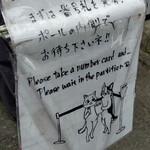 まずは番号札を取り、
ポールの内側で
お待ち下さいネ!!
Please take a number card and
Please wait in the partition